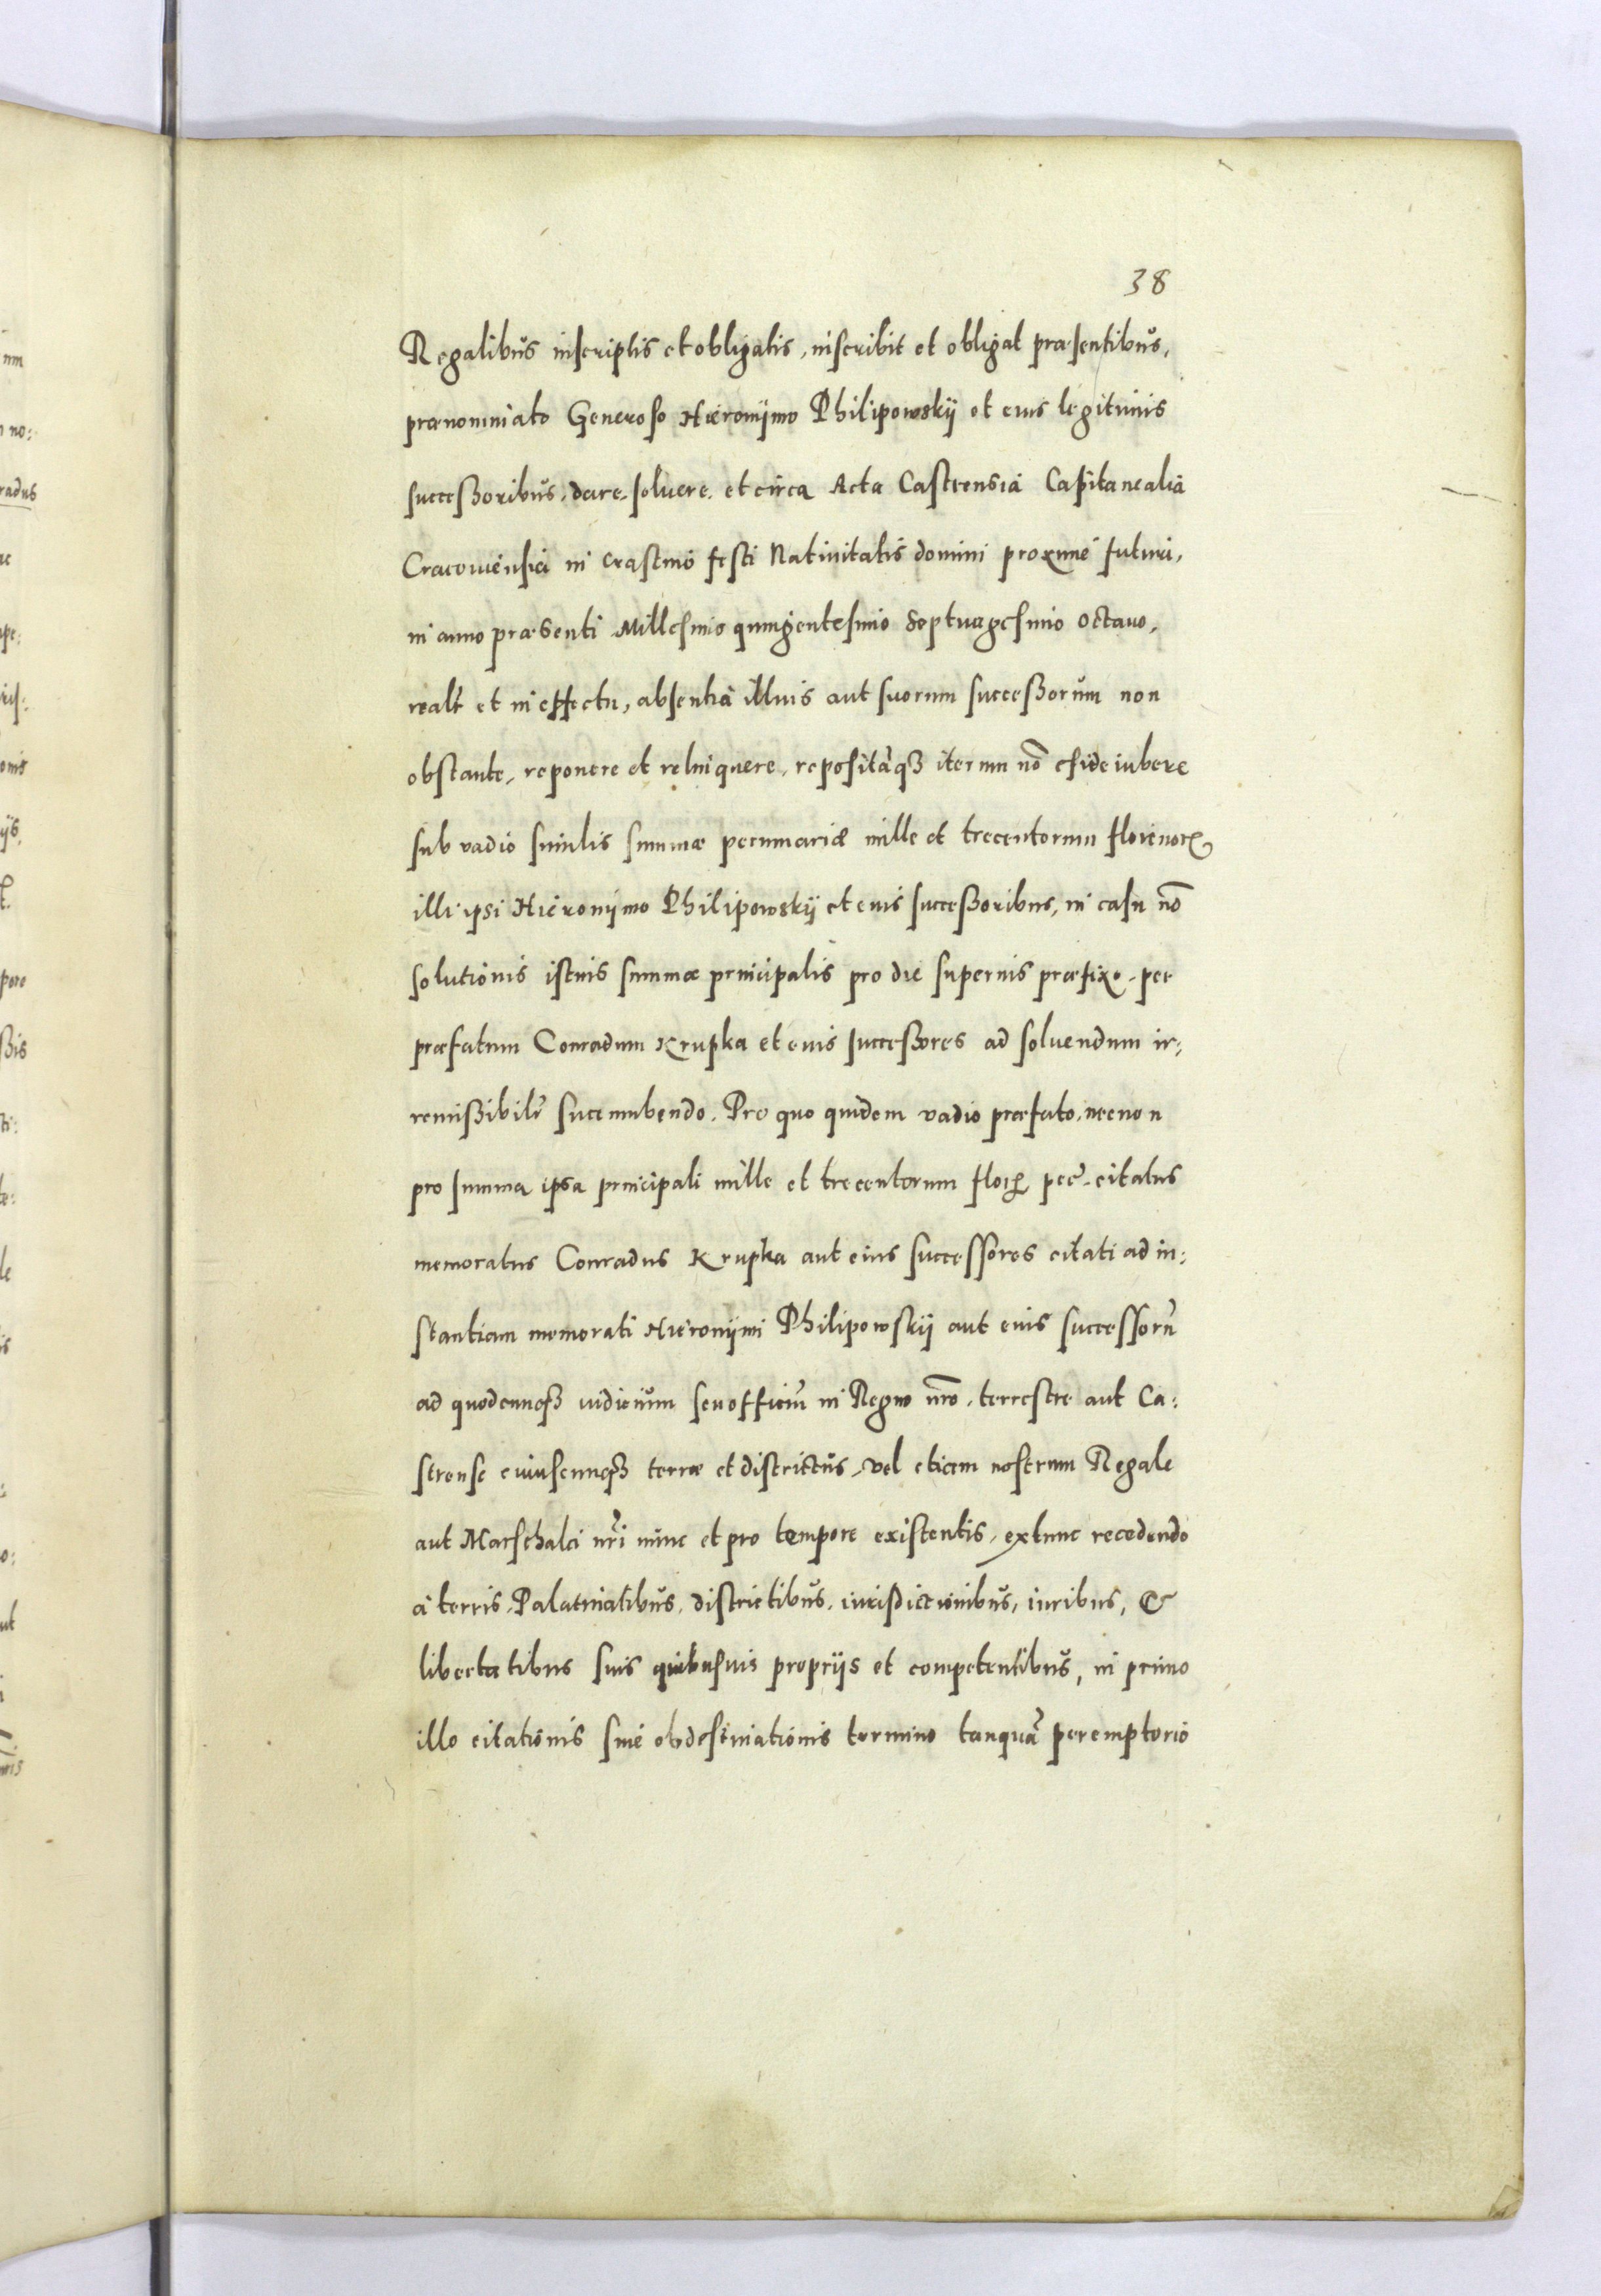 38
Regalibus inscriptis et obligatis, inscribit et obligat præsentibus,
prænominato Generoso Hieronijmo Philipowskij et eius legitimis
successoribus, dare, soluere, et circa Acta Castrensia Capitanealia
Cracouiensia in crastino festi Natiuitatis domini proxime futuri,
in anno præsenti Millesimo quingentesimo Septuagesimo octauo,
realr et in effectu, absentia illius aut suorum successorum non
obstante, reponere et relinquere, repositamqz iterum nō efideiubere
sub vadio similis summæ pecuniariæ mille et trecentorum florenorꝝ
illi ipsi Hieronijmo Philipowskij et eius successoribus, in casu nō
solutionis istius summæ principalis pro die superius præfixo, per
præfatum Conradum Krupka et eius successores ad soluendum ir:
remissibilr succumbendo. Pro quo quidem vadio præfato, necnon
pro summa ipsa principali mille et trecentorum florꝝ pec. citatus
memoratus Conradus Krupka aut eius successores citati ad in:
stantiam memorati Hieronijmi Philipowskij aut eius successorū
ad quodcunqz iudicium seu officiū in Regno nro, terrestre aut Ca:
strense cuiuscunqz terræ et districtus, vel etiam nostrum Regale
aut Marschalci nri nunc et pro tempore existentis, extunc recedendo
a terris, Palatinatibus, districtibus, iurisdictionibus, iuribus, &
libertatibus suis quibusuis proprijs et competentibus, in primo
illo citationis siue obdestinationis termino tanquā peremptorio